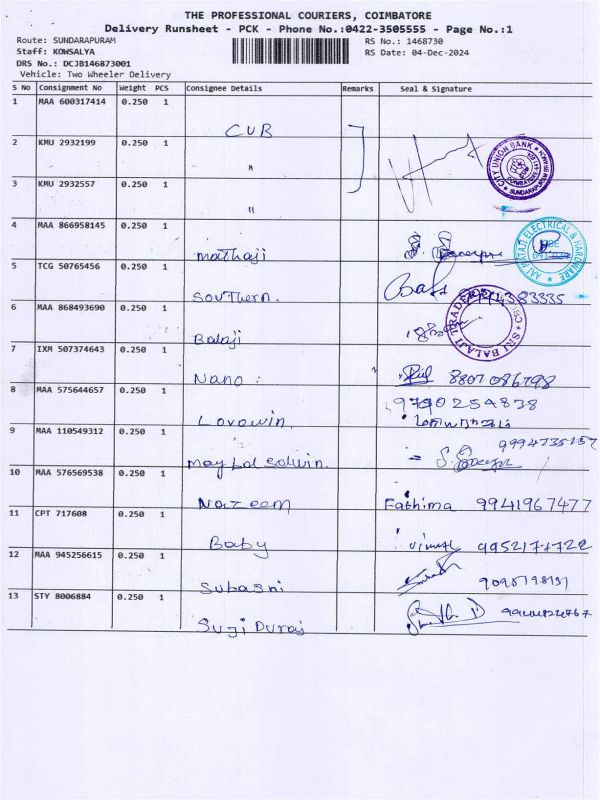 THE PROFESSIONAL COURIERS, COIMBATORE
Delivery Runsheet - PCK - Phone No.:0422-3505555 - Page No.:1
Route: SUNDARAPURAM RS No.: 1468730
Staff: KOWSALYA RS Date: 04-Dec-2024
DRS No.: DCJB146873001
Vehicle: Two Wheeler Delivery
S No Consignment No Weight PCS Consignee Details Remarks Seal & Signature
1 MAA 600317414 0.250 1
CUB
2 KMU 2932199 0.250 1
"
CITY UNION BANK
COIMBATORE
3 KMU 2932557 0.250 1
"
4 MAA 866958145 0.250 1
Mathaji
ELECTRICAL & HARDWARE
5 TCG 50765456 0.250 1
Southern.
6 MAA 868493690 0.250 1
Balaji
SRI BALAJI
7 IXM 507374643 0.250 1
Nano : 8807086798
8 MAA 575644657 0.250 1
9790254838
Lovowin.
9 MAA 110549312 0.250 1
10 MAA 576569538 0.250 1
Nazeem Fathima 9941967477
11 CPT 717608 0.250 1
Baby
12 MAA 945256615 0.250 1
Subashi
13 STY 8006884 0.250 1
Suji Duraj